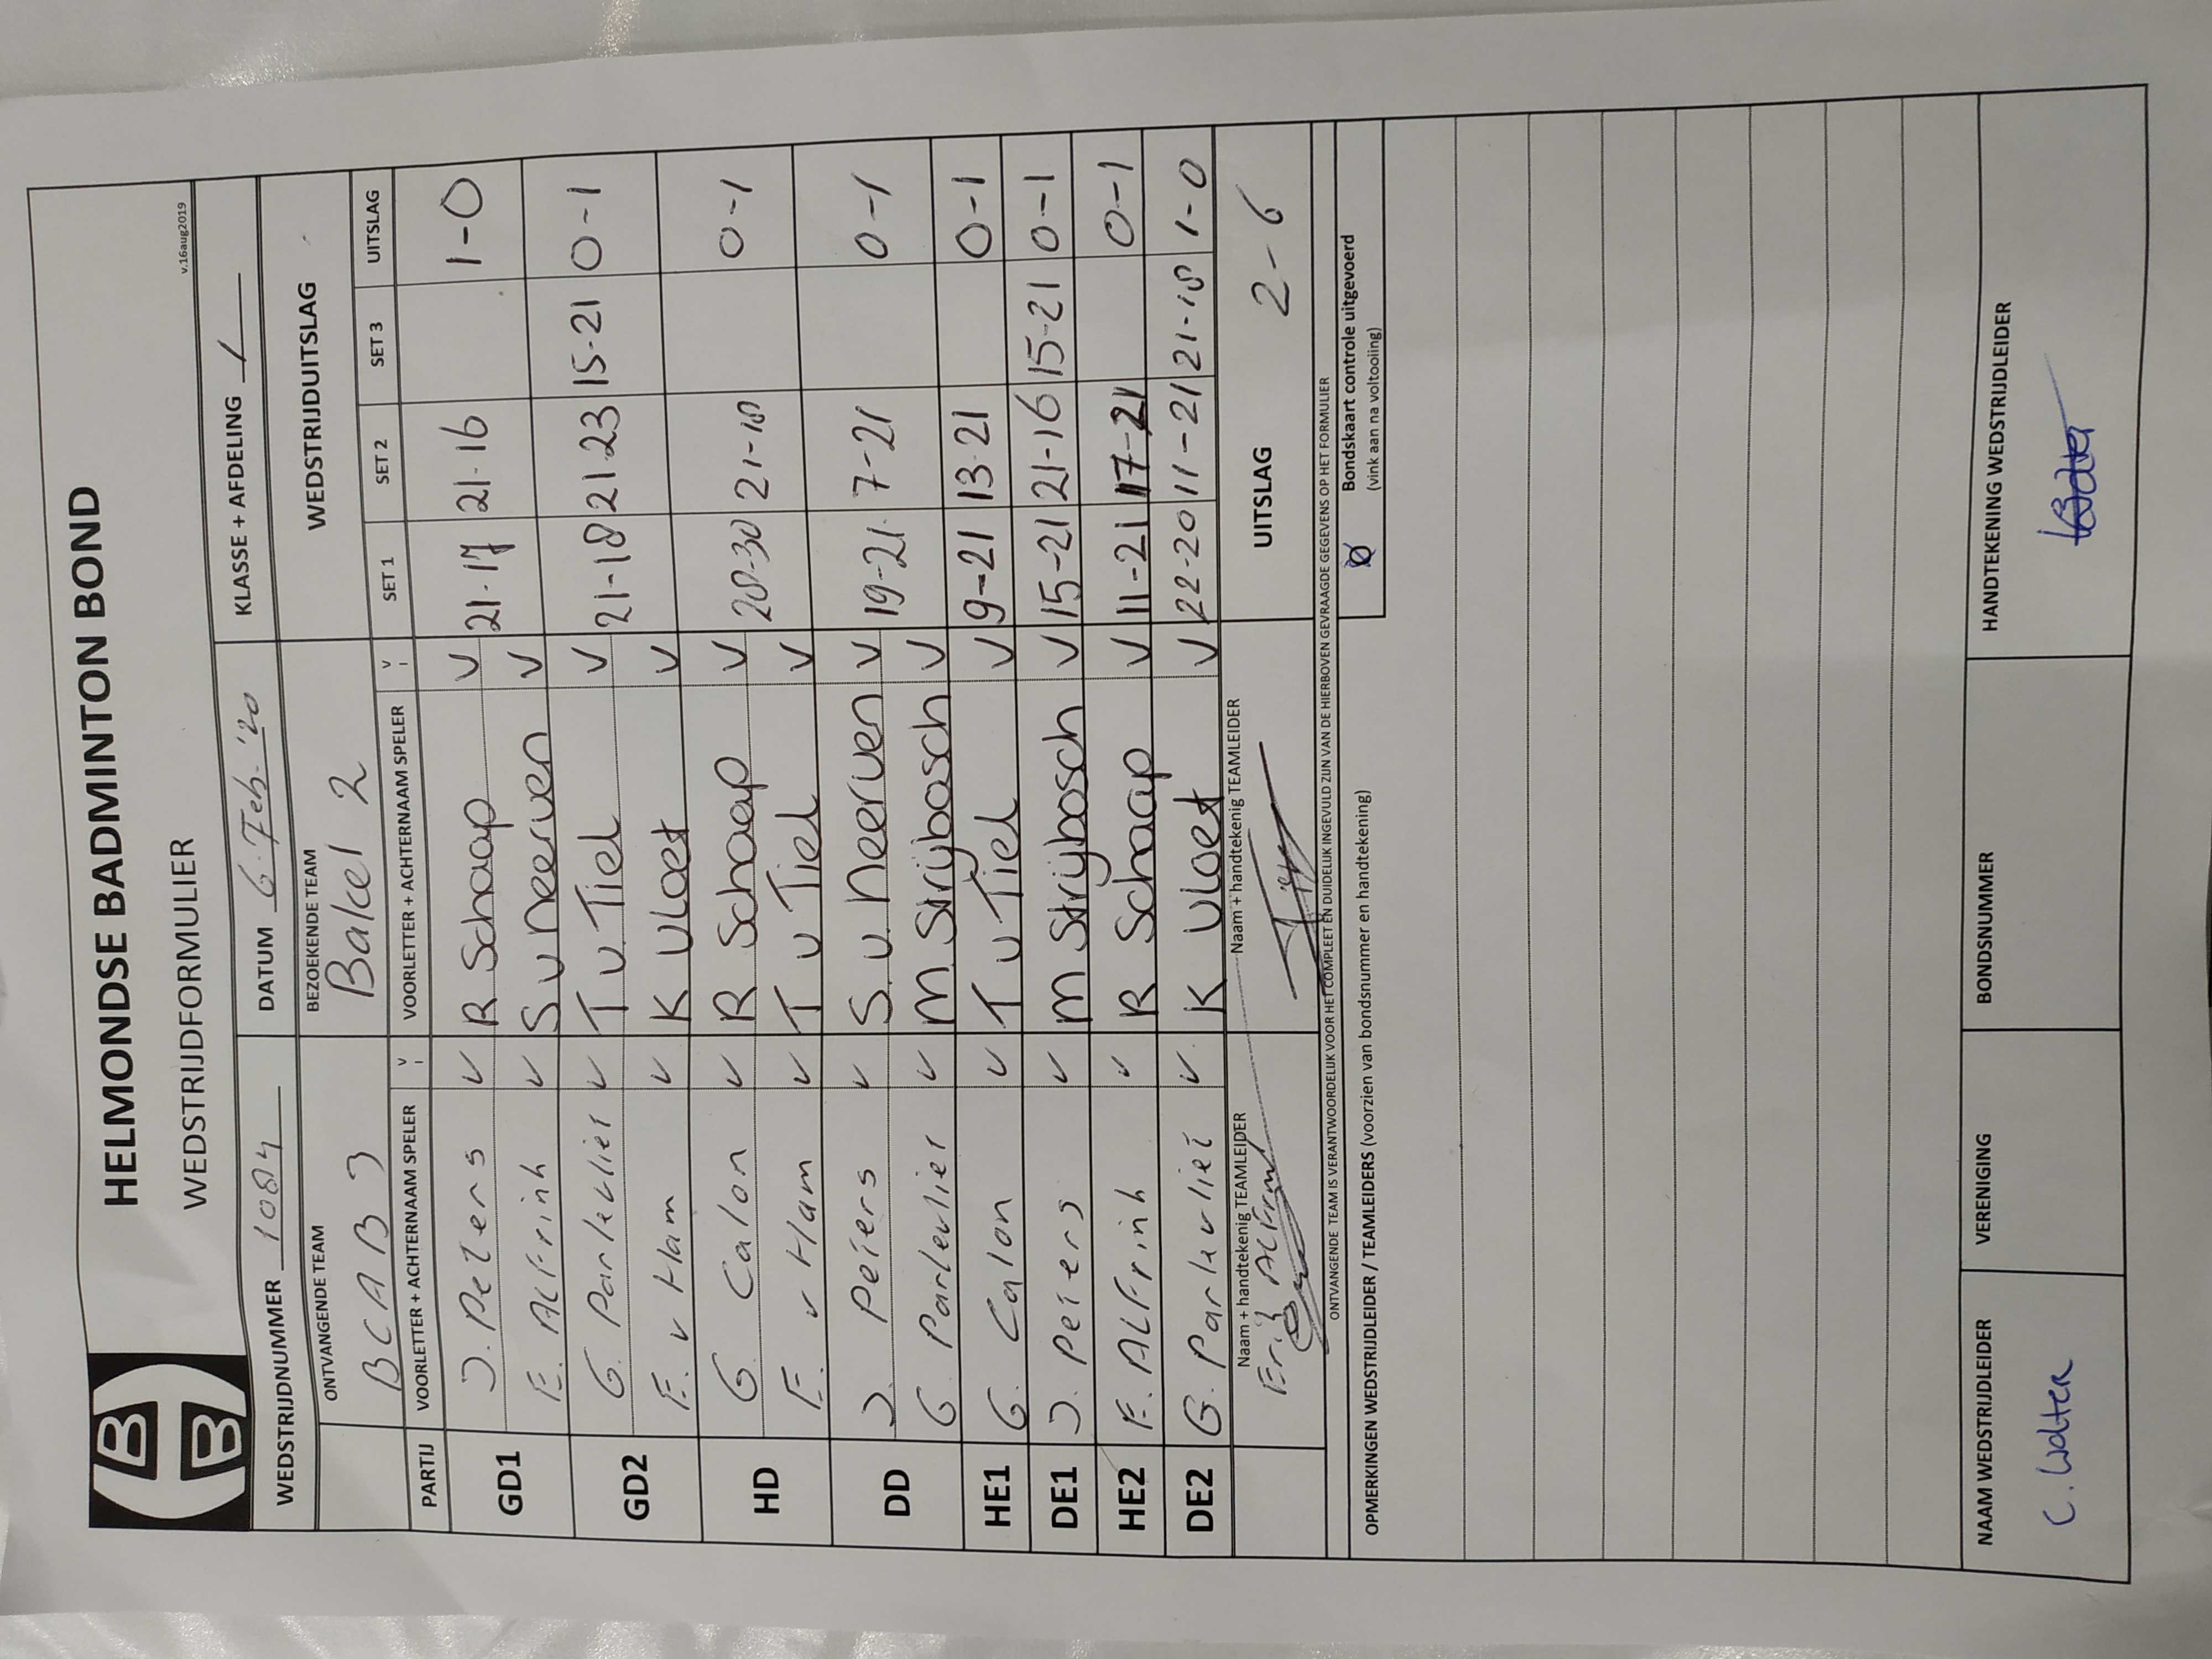 HELMONDSE BADMINTON BOND
WEDSTRIJDFORMULIER
v.16aug2019
WEDSTRIJDNUMMER 1084 DATUM 6. Feb. '20 KLASSE + AFDELING 1
ONTVANGENDE TEAM BEZOEKENDE TEAM WEDSTRIJDUITSLAG
BCAB 3 Bakel 2
PARTIJ VOORLETTER + ACHTERNAAM SPELER V VOORLETTER + ACHTERNAAM SPELER V SET 1 SET 2 SET 3 UITSLAG
GD1 J. Peters V R Schaap V 21-17 21-16 1-0
E. ALFrink V S v neerven V
GD2 G. Parlevliet V T v. Tiel V 21-18 21-23 15-21 0-1
E. v Ham V K Vloet V
HD G. Calon V R Schaap V 28-30 21-18 0-1
E. v Ham V T v Tiel V
DD J. Peters V S. v. Neerven V 19-21 7-21 0-1
G Parlevliet V M. Strijbosch V
HE1 G. Calon V T v Tiel V 9-21 13-21 0-1
DE1 J. Peters V M Strijbosch V 15-21 21-16 15-21 0-1
HE2 E. ALFrink V R Schaap V 11-21 17-21 0-1
DE2 G. Parlevliet V. K Vloet V 22-20 11-21 21-18 1-0
Naam + handtekenig TEAMLEIDER Naam + handtekenig TEAMLEIDER UITSLAG 2-6
Erik ALFrink
ONTVANGENDE TEAM IS VERANTWOORDELIJK VOOR HET COMPLEET EN DUIDELIJK INGEVULD ZIJN VAN DE HIERBOVEN GEVRAAGDE GEGEVENS OP HET FORMULIER
OPMERKINGEN WEDSTRIJDLEIDER / TEAMLEIDERS (voorzien van bondsnummer en handtekening)
Bondskaart controle uitgevoerd
(vink aan na voltooiing)
NAAM WEDSTRIJDLEIDER VERENIGING BONDSNUMMER HANDTEKENING WEDSTRIJDLEIDER
C. Wolter